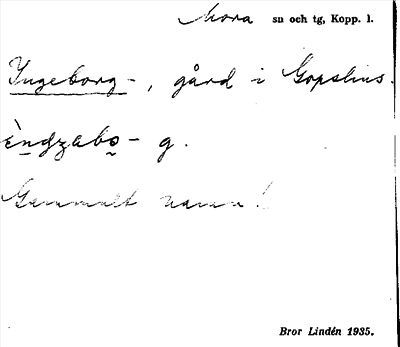 Mora sn och tg, Kopp. l.
Ingeborg-, gård i Gopshus.
èndzabo- g.
Gammalt namn!
Bror Lindén 1935.